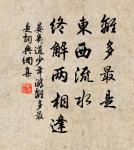 離多最是
東西流水
終解兩相逢
晏幾道少年游離多最
是詞典網集